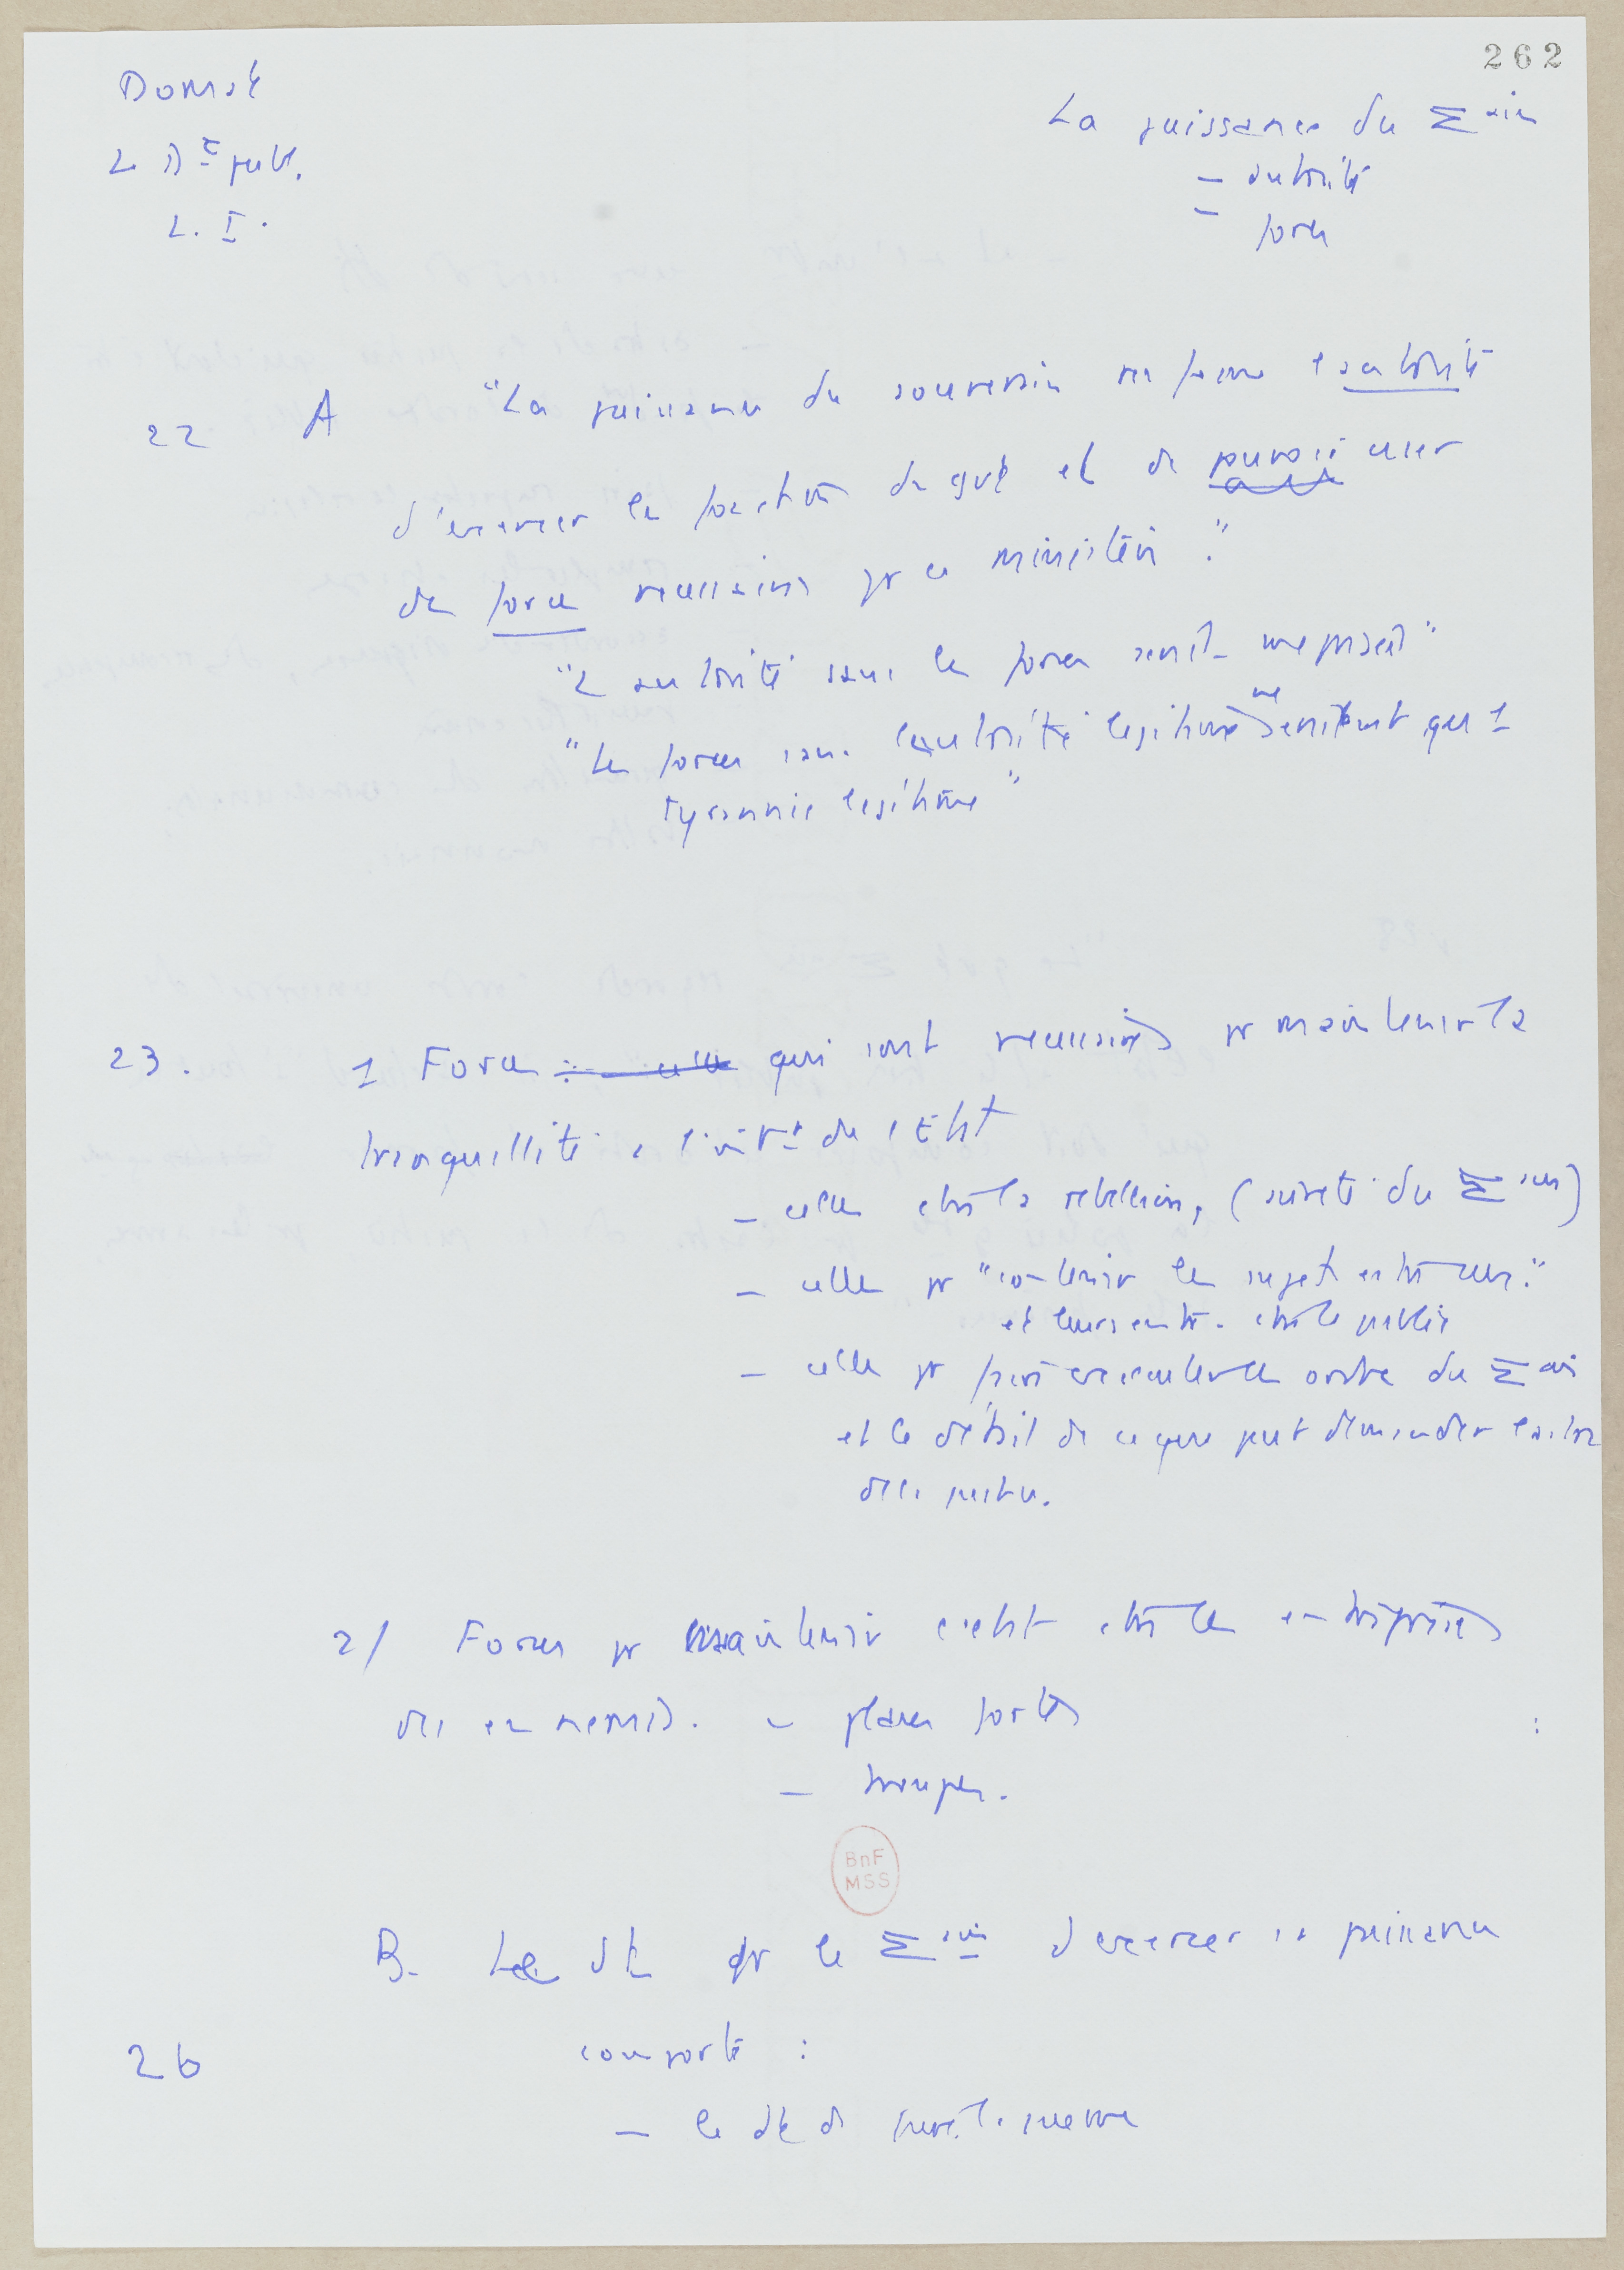 262
Domat
L Dt publ.
L. I.
La puissance du Σain
– autorité
– force
22 A "La puissance du souverain renferme l'autorité
d'exercer les fonctions du gvt et de user
de force necessaires pr ce ministère."
"L'autorité sans la force serait meprisée"
"La force sans l'autorité legitime ne serait que 1
tyrannie legitime"
23. 1 Forces qui sont necessaires pr maintenir la
tranquillité à l'intr de l'Etat
– celles ctre la rebellion, (sureté du Σain)
– celles pr "contenir les sujets entre eux."
et leurs entr. ctre le public
– celles pr faire executer les ordres du Σain
et le détail de ce que peut demander
des justice.
2/ Forces pr maintenir l'etat ctre les entreprises
des ennemis. – places fortes
– troupes.
BnF
MSS
B. Le dt pr le Σain d'exercer sa puissance
26 comporte :
– le dt de faire la guerre